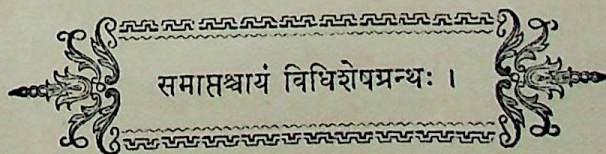 समाप्तश्चायं विधिशेषग्रन्थः ।